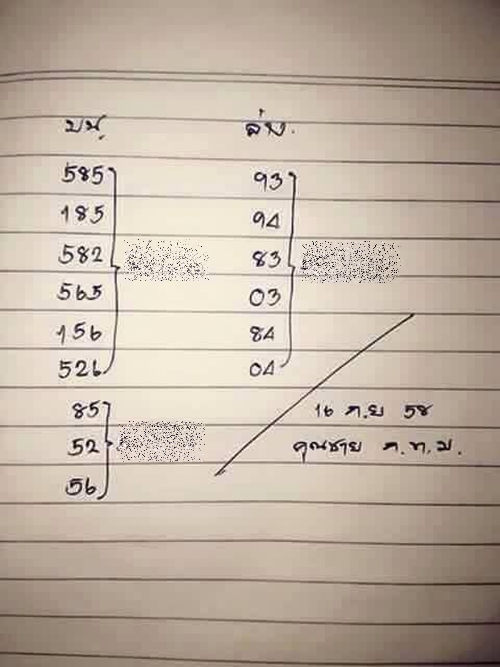 บน ล่าง.
585 93
185 94
582 83
565 03
156 84
526 04
85
52
56
16 ก.ย 58
คุณชาย ก.ท.ม.